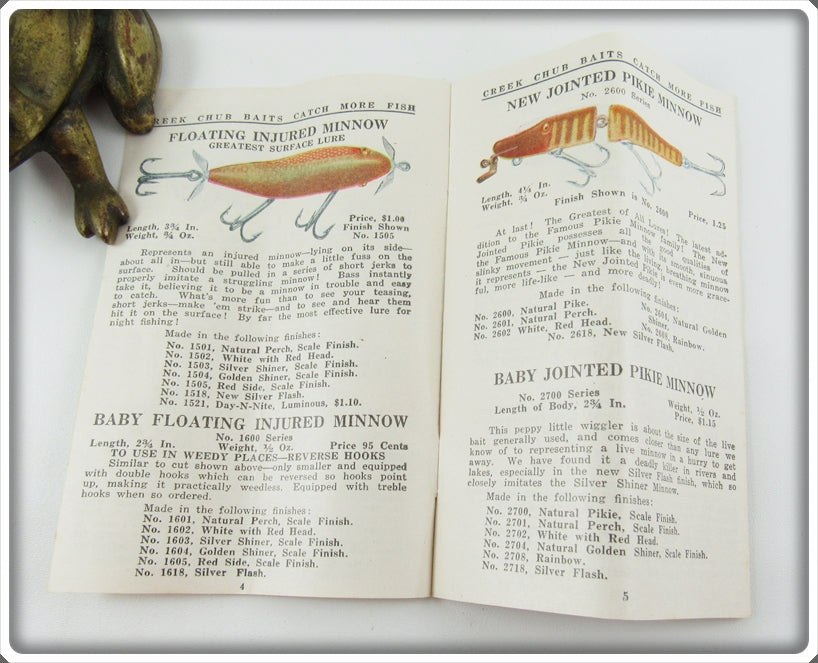 CREEK CHUB BAITS CATCH MORE FISH
FLOATING INJURED MINNOW
GREATEST SURFACE LURE
Length, 3¾ In.
Weight, ¾ Oz.
Price, $1.00
Finish Shown
No. 1505
Represents an injured minnow—lying on its side—
about all in—but still able to make a little fuss on the
surface. Should be pulled in a series of short jerks to
properly imitate a struggling minnow! Bass instantly
take it, believing it to be a minnow in trouble and easy
to catch. What's more fun than to see your teasing,
short jerks—make 'em strike—and to see and hear them
hit it on the surface! By far the most effective lure for
night fishing!
Made in the following finishes:
No. 1501, Natural Perch, Scale Finish.
No. 1502, White with Red Head.
No. 1503, Silver Shiner, Scale Finish.
No. 1504, Golden Shiner, Scale Finish.
No. 1505, Red Side, Scale Finish.
No. 1518, New Silver Flash.
No. 1521, Day-N-Nite, Luminous, $1.10.
BABY FLOATING INJURED MINNOW
No. 1600 Series
Length, 2¾ In. Weight, ½ Oz. Price 95 Cents
TO USE IN WEEDY PLACES—REVERSE HOOKS
Similar to cut shown above—only smaller and equipped
with double hooks which can be reversed so hooks point
up, making it practically weedless. Equipped with treble
hooks when so ordered.
Made in the following finishes:
No. 1601, Natural Perch, Scale Finish.
No. 1602, White with Red Head.
No. 1603, Silver Shiner, Scale Finish.
No. 1604, Golden Shiner, Scale Finish.
No. 1605, Red Side, Scale Finish.
No. 1618, Silver Flash.
4
CREEK CHUB BAITS CATCH MORE FISH
NEW JOINTED PIKIE MINNOW
No. 2600 Series
Length, 4¼ In.
Weight, ¾ Oz.
Finish Shown is No. 2600
Price, 1.25
At last! The Greatest of All Lures! The latest ad-
dition to the Famous Pikie Minnow family! The New
Jointed Pikie possesses all the good qualities of
the Famous Pikie Minnow—and with smooth, sinuous
slinky movement — just like the living, breathing minnow
it represents — the New Jointed Pikie! even more grace-
ful, more life-like — and more deadly!
Made in the following finishes:
No. 2600, Natural Pike.
No. 2601, Natural Perch.
No. 2602 White, Red Head.
No. 2604, Natural Golden
Shiner.
No. 2608, Rainbow.
No. 2618, New Silver Flash.
BABY JOINTED PIKIE MINNOW
No. 2700 Series
Length of Body, 2¾ In.
Weight, ½ Oz.
Price, $1.15
This peppy little wiggler is about the size of the live
bait generally used, and comes closer than any lure we
know of to representing a live minnow in a hurry to get
away. We have found it a deadly killer in rivers and
lakes, especially in the new Silver Flash finish, which so
closely imitates the Silver Shiner Minnow.
Made in the following finishes:
No. 2700, Natural Pikie, Scale Finish.
No. 2701, Natural Perch, Scale Finish.
No. 2702, White with Red Head.
No. 2704, Natural Golden Shiner, Scale Finish.
No. 2708, Rainbow.
No. 2718, Silver Flash.
5